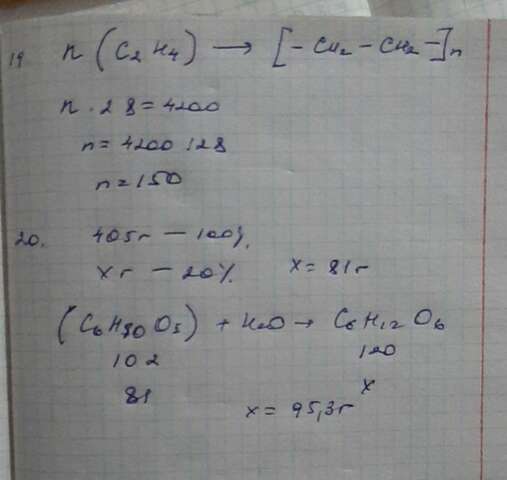 19 n (C2 H4) → [- CH2 - CH2 -]n
n · 28 = 4200
n = 4200 : 28
n = 150
20. 405г — 100%.
x г — 20% x = 81 г
(C6H10 O5) + H2O → C6 H12 O6
102 120
81 x
x = 95,3 г